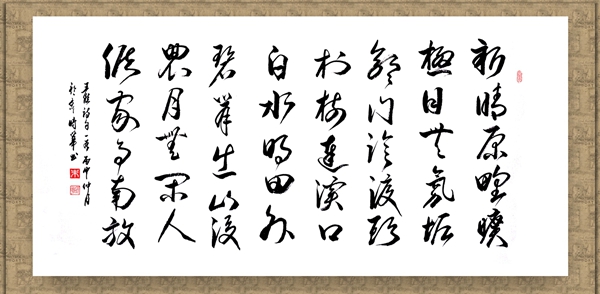 新晴原野曠
極目无氛垢
郭门临渡頭
村树连溪口
白水明田外
碧峯出山後
農月無閑人
倾家事南畝
王維詩 丙申 仲月
時華书